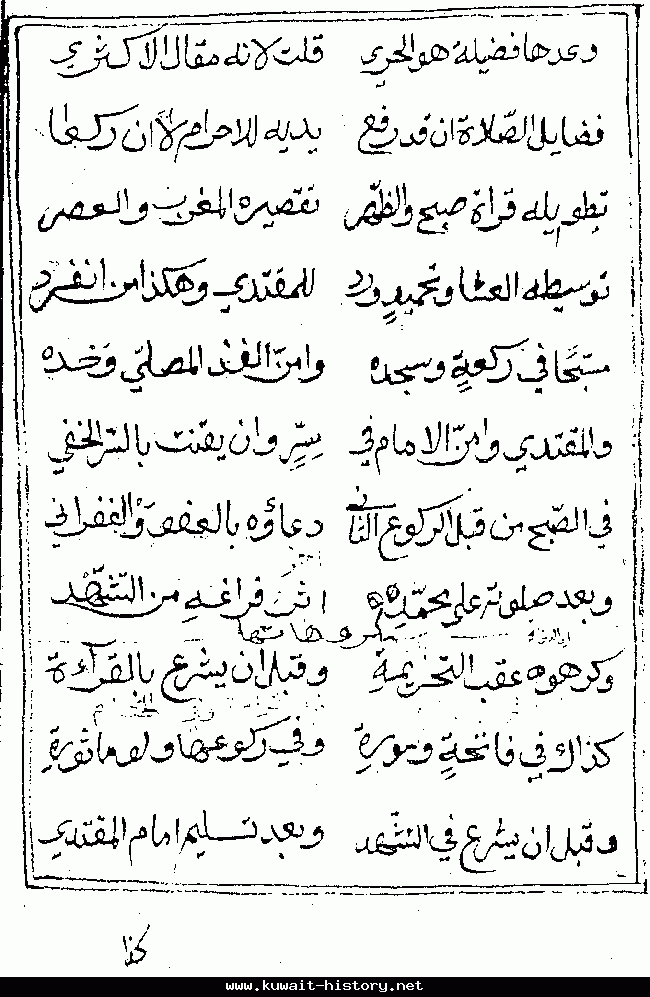 وعدها فضيلة هو الحري قلت لانه مقال الاكثري
فضايل الصّلاة ان قد رفع يديه للاحرام لا ان ركعا
تطويله قراة صبح والظّهر تقصيره المغرب والعصر
توسيطه العشا وتحميد ورد للمقتدي وهكذا من انفرد
مسبّحا في ركعةٍ وسجده وامنّ الفذ المصلّي وحده
والمقتدي وامنّ الامام في سِرٍّ وان يقنت بالسّر الخفي
في الصّبح من قبل الركوع الثاني دعاؤه بالعفو والغفراني
وبعد صلوته على محمّد اثر فراغه من التّشهّد
مكروهاتها
وكرهوه عقب التحريمة وقبل ان يشرع بالقرآءة
كذاك في فاتحةٍ وسورةٍ وفي ركوعها ولو ماثورةٍ
وقبل ان يشرع في التشّهد وبعد تسليم امام المقتدي
كذا
www.kuwait-history.net